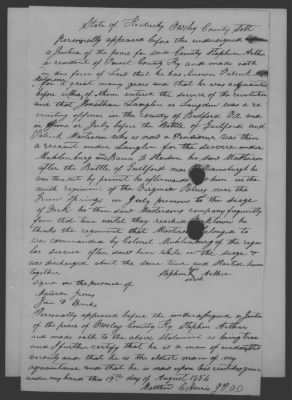 State of Kentucky Owsley County Sctt
Personally appeared before the undersigned
a Justice of the peace for said County Stephen Arthur
a resident of County Ky and made oath
in due form of Law that he has known Patrick
for several many years and that he was acquainted
before either of them entered the service of the
and that Jonathan Langdon or Langdon was a re
cruiting officer in the County of Bedford Va and
in or July before the Battle of Guilford and
Patrick Masterson who is now a Pensioner was then
a recruit under Langdon for the service under
Muhlenburg and Baron D Steuben he saw Masterson
after the Battle of Guilford near Hillsborough he
was then by permit he afterwards saw him in the
sixth regiment of the Virginia Blues near the
Springs in July previous to the siege
of York he then saw Masterson company frequently
from that time until they and he
thinks the regiment that Masterson belonged to
was commanded by Colonel Muhlenburg of the regu
lar service often saw him while in the siege &
was discharged about the same time and started home
together Stephen Arthur
mark
Sign in the presence of
Personally appeared before the undersigned a Justice
of the peace of Owsley County Ky Stephen Arthur
and made oath to the above Statement as being true
and I further certify that he is a man of undoubted
veracity and that he is the oldest man of my
aquaintance and that he is now upon his
under my hand this 19th day of August
J.P.O.C